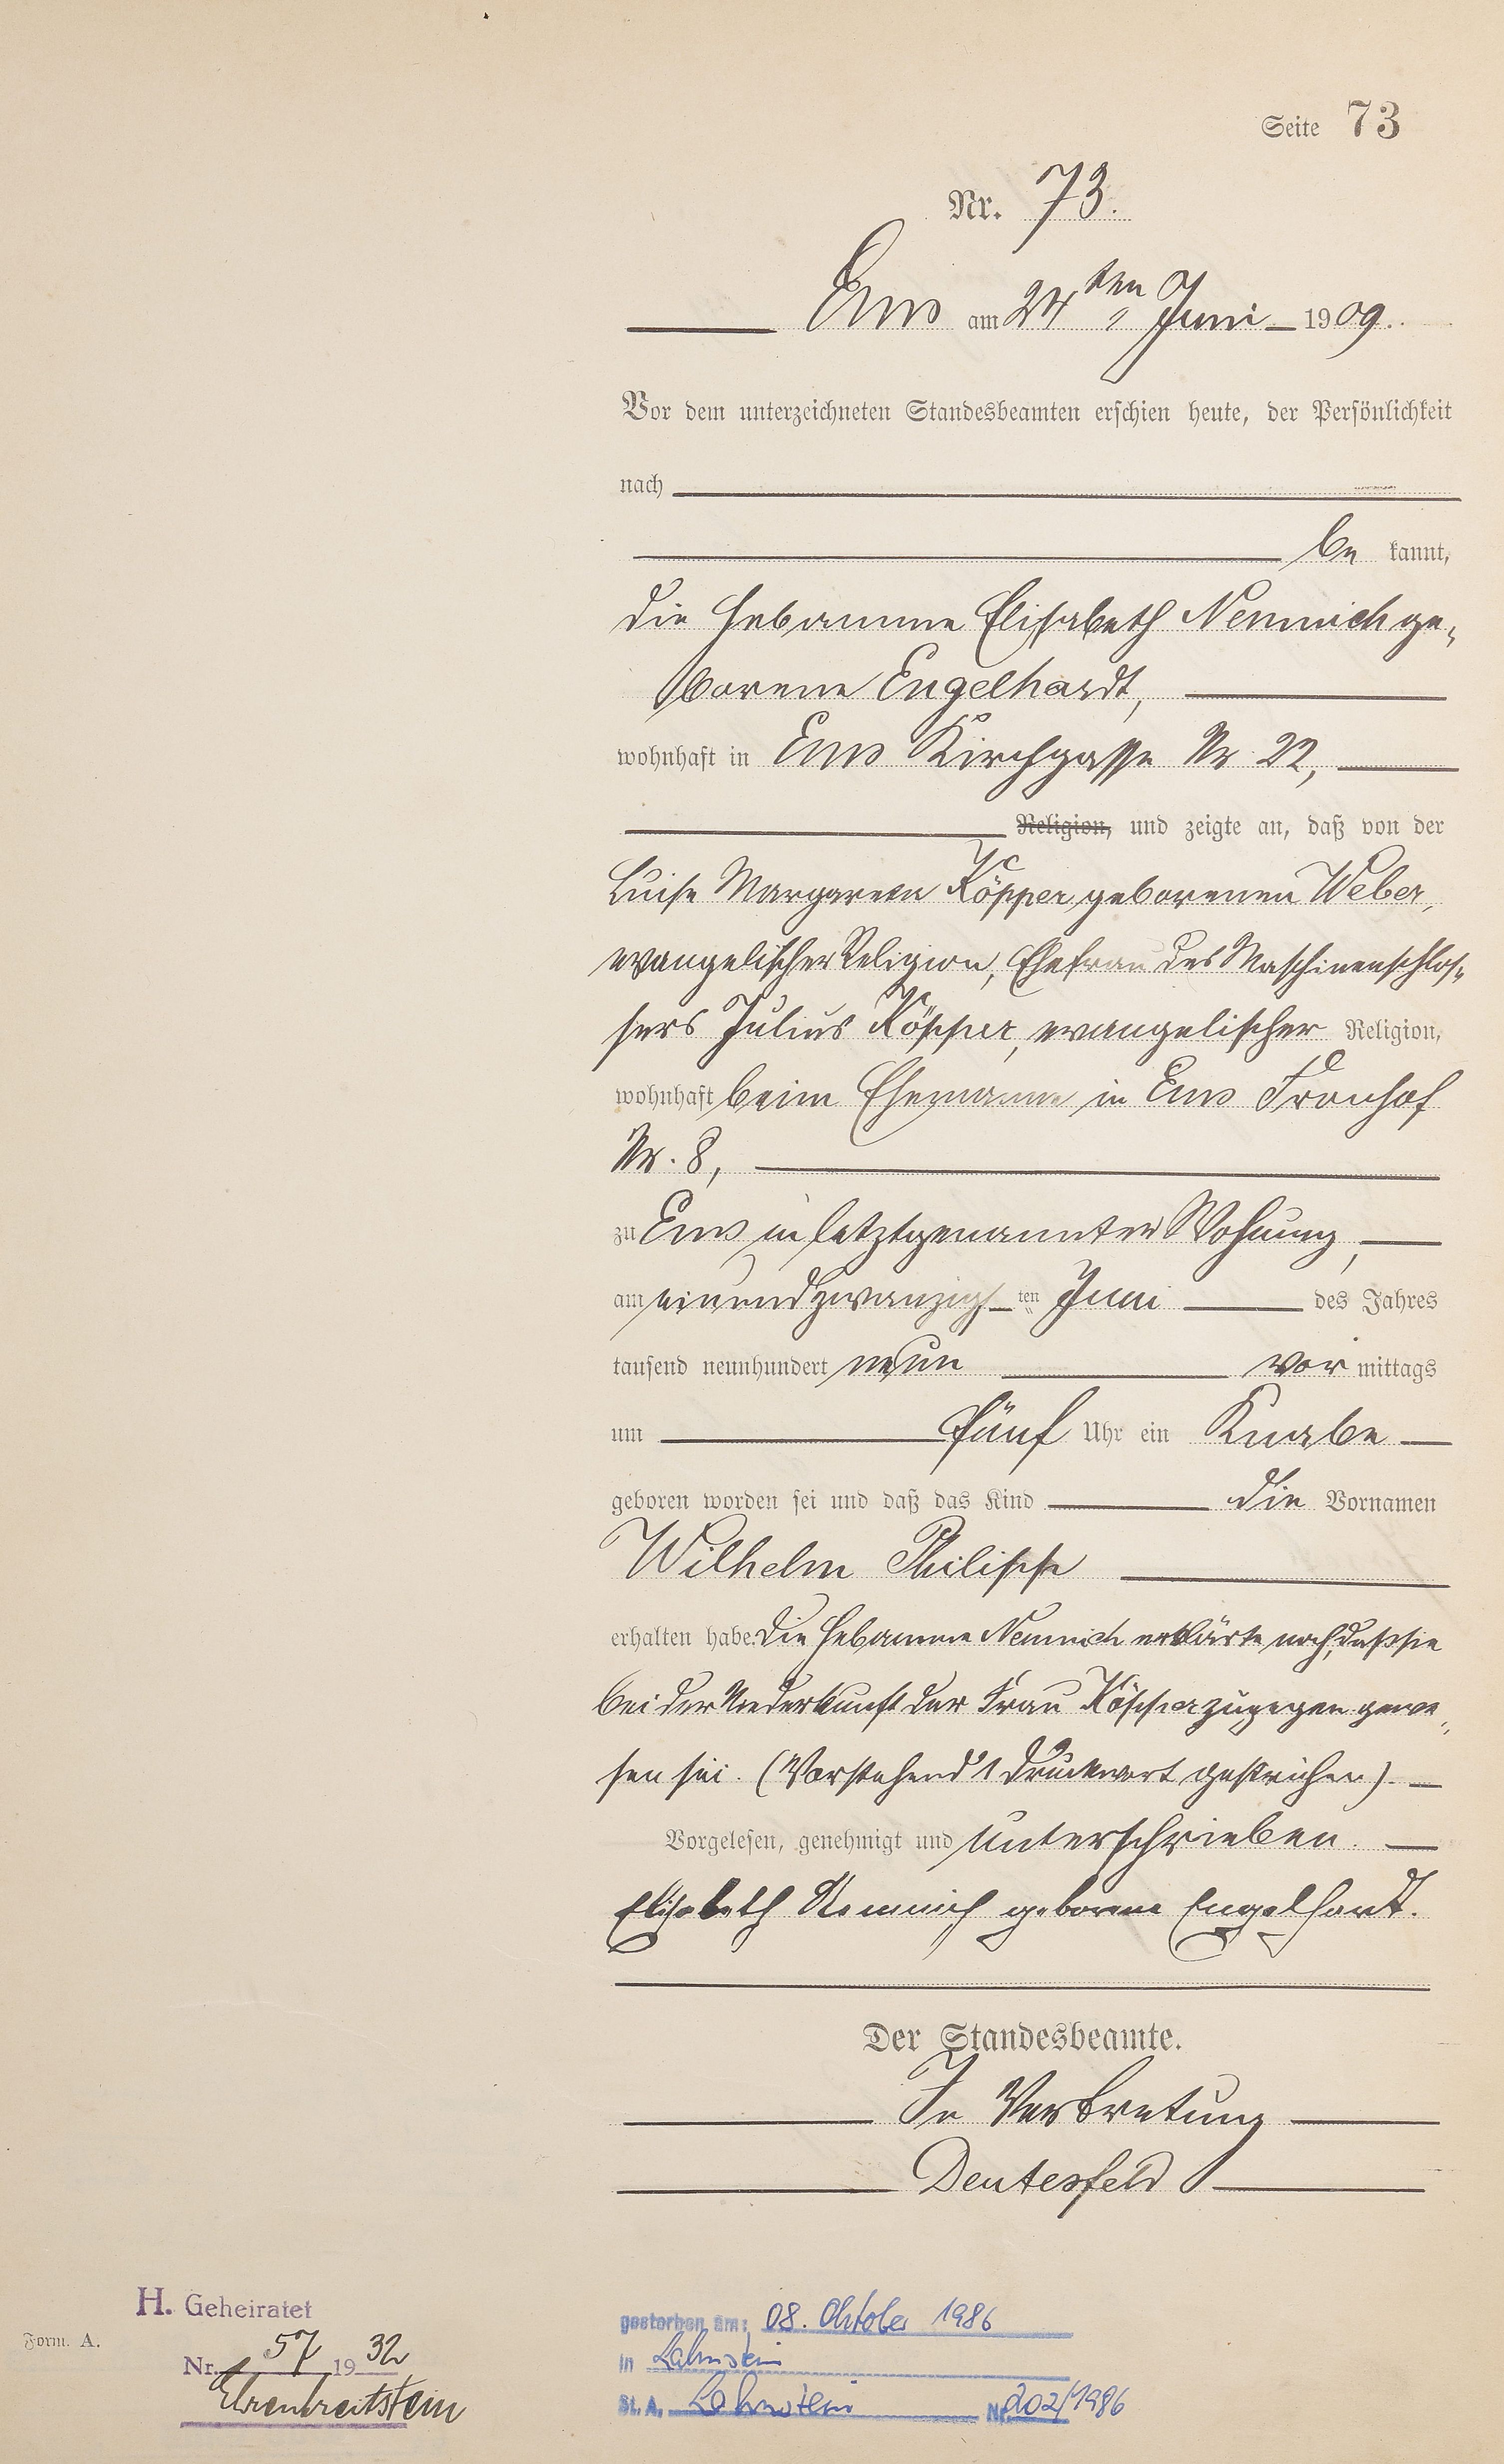 Seite 73
Nr. 73.
Ems am 24ten Juni 1909.
Vor dem unterzeichneten Standesbeamten erschien heute, der Persönlichkeit
nach
be kannt,
die Hebamme Elisabeth Nemnich ge-
borene Engelhardt,
wohnhaft in Ems Kirchgasse Nr 22,
Religion, und zeigte an, daß von der
Luise Margareta Köpper geborenen Weber,
evangelischer Religion, Ehefrau des Maschinenschlos-
sers Julius Köpper, evangelischer Religion,
wohnhaft beim Ehemanne in Ems Fronhof
Nr. 8,
zu Ems in letztgenannter Wohnung,
am einundzwanzigsten Juni des Jahres
tausend neunhundert neun vor mittags
um fünf Uhr ein Knabe
geboren worden sei und daß das Kind die Vornamen
Wilhelm Philipp
erhalten habe. Die Hebamme Nemnich erklärte noch, daß sie
bei der Niederkunft der Frau Köpper zugegen gewe-
sen sei. (Vorstehend 1 Druckwort gestrichen).
Vorgelesen, genehmigt und unterschrieben.
Elisabeth Nemnich geborene Engelhardt.
Der Standesbeamte.
In Vertretung
Deutesfeld
H. Geheiratet
Nr. 57 1932
Ehrenbreitstein
Form. A.
gestorben am: 08. Oktober 1986
in Lahnstein
St. A. Lahnstein Nr. 202/1986